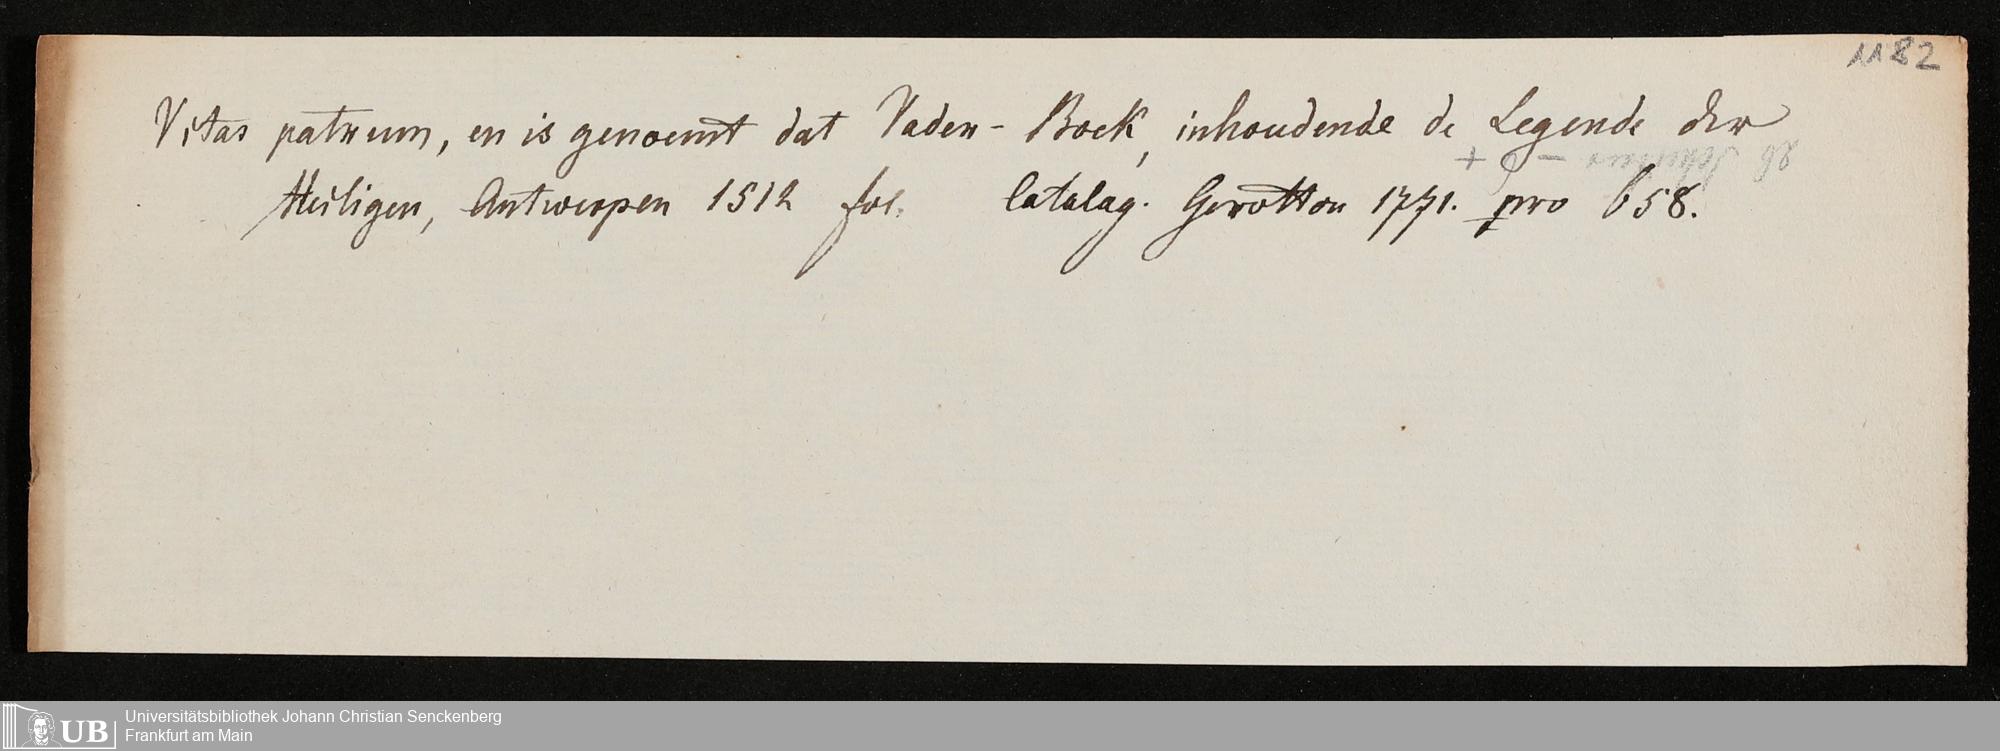 1182
Vitas patrum, en is genoemt dat Vader-Boek, inhoudende de Legende der
Heiligen, Antwerpen 1512 fol. Catalag. Gerotton 1771. pro 658.
Universitätsbibliothek Johann Christian Senckenberg
UB Frankfurt am Main